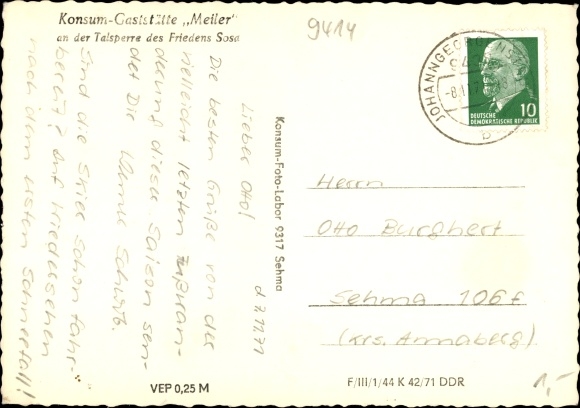 Konsum-Gaststätte „Meiler"
an der Talsperre des Friedens Sosa
9414
JOHANNGEORG
-8.11.
b
10
DEUTSCHE
DEMOKRATISCHE REPUBLIK
d 7.11.71
Lieber Otto!
Die besten Grüße von der
vielleicht letzten Fußwan-
derung dieser Saison sen-
det Dir Werner Schwib.
Sind die Skier schon fahr-
bereit? Auf Wiedersehen
nach dem ersten Schneefall!
Konsum-Foto-Labor 9317 Sehma
Herrn
Otto Burghert
Sehma 106f
(Krs. Annaberg)
VEP 0,25 M
F/III/1/44 K 42/71 DDR
1,-